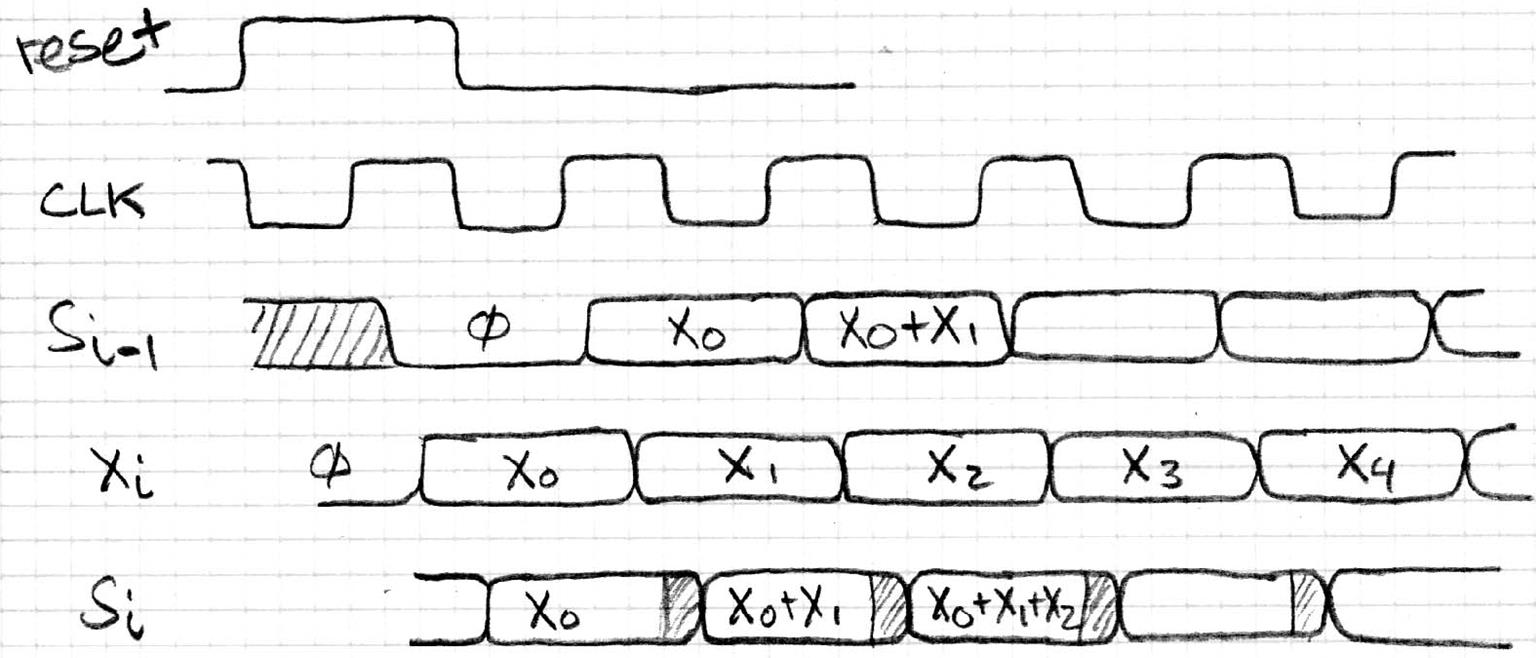 reset
CLK
Si-1 ϕ X0 X0+X1
Xi ϕ X0 X1 X2 X3 X4
Si X0 X0+X1 X0+X1+X2